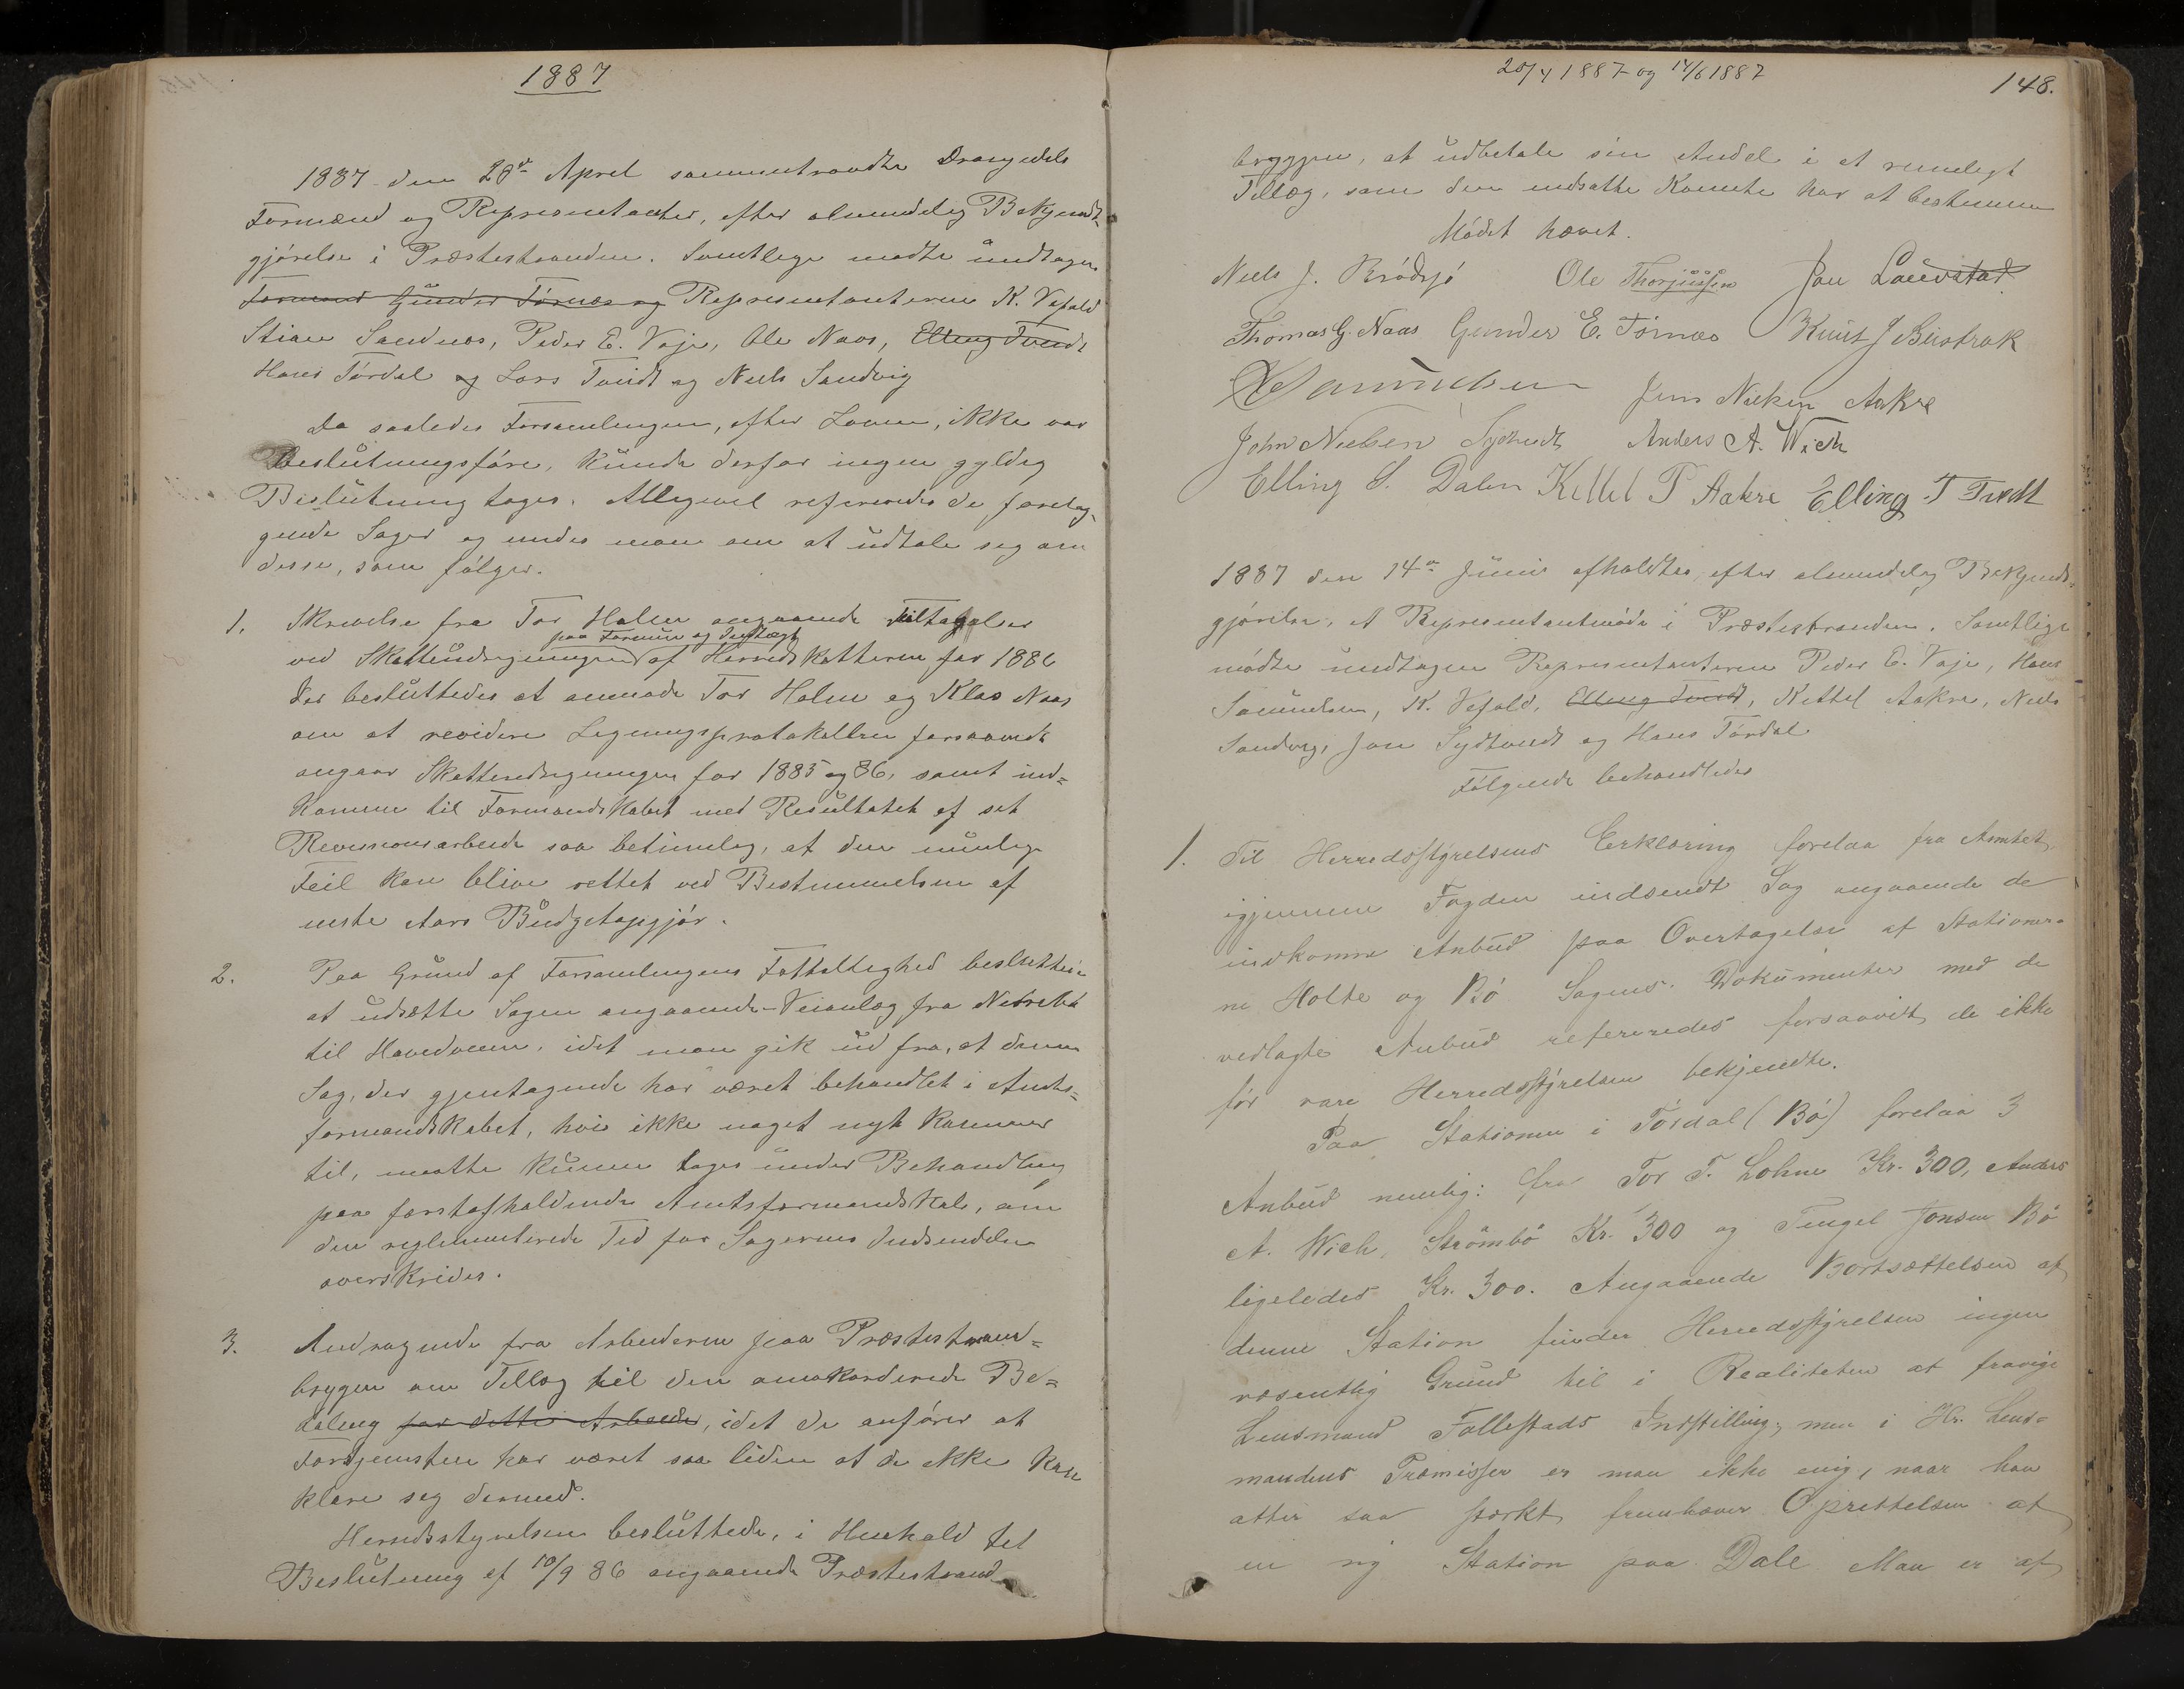 1887
1887 den 28de April sammentraadte Drangedals
Formænd og Representanter, efter almindelig Bekjendt-
gjørelse i Præstestranden. Samtlige mødte undtagen
Formand Gunder Tørnæs og Representanterne K. Vefald
Stian Sandnæs, Peder E. Voje, Ole Naas, Elling Tvedt
Hans Tørdal og Lars Tvedt og Niels Sandvig
Da saaledes Forsamlingen, efter Loven, ikke var
Beslutningsføre, kunde derfor ingen gyldig
Beslutning tages. Alligevel refereredes de forelig-
gende Sager og enedes man om at udtale sig om
disse, som følger.
1. Skrivelse fra Tor Holm angaaende Feiltagelser
paa Formue og Indtægt
ved Skatteudregningen af Herredskatterne for 1886
Der besluttedes at anmode Tor Holm og Klas Naas
om at revidere Ligningsprotokollen forsaavidt
angaar Skatteudregningen for 1885 og 86, samt ind=
komme til Formandskabet med Resultatet af sit
Revisionsarbeide saa betimelig, at den mulige
Feil kan blive rettet ved Bestemmelsen af
neste Aars Budgetopgjør.
2. Paa Grund af Forsamlingens Faatallighed besluttedes
at udsætte Sagen angaaende Veianlæg fra Nedrebø
til Hovedveien, idet man gik ud fra, at denne
Sag, der gjentagende har været behandlet i Amts=
formandskabet, hvis ikke noget nyt kommer
til, maatte kunne tages under Behandling
paa førstafholdende Amtsformandskab, om
den reglementerede Tid for Sagernes Indsendelse
overskrides.
3. Andragende fra Arbeiderne paa Præstestrand=
bryggen om Tillæg til den omakkorderede Be=
taling for dette Arbeide, idet de anfører at
Fortjenesten har været saa liden at de ikke kan
klare sig dermed.
Herredsstyrelsen besluttede, i Henhold til
Beslutning af 10/9 86 angaaende Præstestrand
28/4 1887 og 14/6 1887
148.
bryggen, at udbetale sin Andel i et rimeligt
Tillæg, som den nedsatte Komite har at bestemme
Mødet hævet.
Niels J. Brødsjø Ole Thorjussen Jan Lauvstad
Thomas G. Naas Gunder E. Tørnæs Knut J Bustrak
H Samuelsen Jens Nielsen Aakre
John Nielsen Sydtvedt Anders A. Wich
Elling S. Dalen Kettel P Aakre Elling T Tvedt
1887 den 14de Juni afholdtes, efter almindelig Bekjendt=
gjørelse, et Representantmøde i Præstestranden. Samtlige
mødte undtagen Representanterne Peder E. Voje, Hans
Samuelsen, K. Vefald, Elling Tvedt, Kettel Aakre, Niels
Sandvig, Jon Sydtvedt og Hans Tørdal
Følgende behandledes
1. Til Herredsstyrelsens Erklæring forelaa fra Amtet
igjennem Fogden indsendt Sag angaaende de
indkomne Anbud paa Overtagelse af Stationer-
ne Holte og Bø. Sagens Dokumenter med de
vedlagte Anbud refereredes forsaavidt de ikke
før vare Herredsstyrelsen bekjendte.
Paa Stationen i Tørdal (Bø) forelaa 3
Anbud nemlig: fra Tor T. Lohne Kr. 300, Anders
A. Wich, Strømbø Kr. 300 og Tengel Jonsen Bø
ligeledes Kr. 300. Angaaende Bortsættelsen af
denne Station finder Herredsstyrelsen ingen
væsentlig Grund til i Realiteten at fravige
Lensmand Føllestads Indstilling, men i Hr. Lens=
mandens Præmisser er man ikke enig, naar han
atter saa stærkt fremhæver Oprettelsen af
en ny Station paa Dale. Man er af